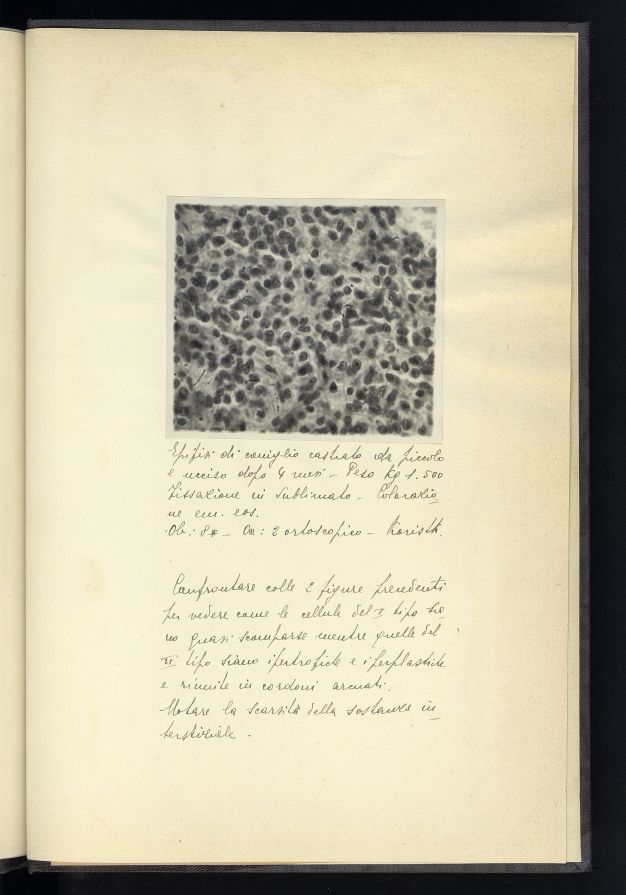 Epifisi di coniglio castrato da piccolo
e ucciso dopo 4 mesi – Peso Kg 1.500
Fissazione in Sublimato – Colorazio
ne em. eos.
Ob.: 8* – Oc: 2 ortoscopico – Koristk.
Confrontare colle 2 figure precedenti
per vedere come le cellule del I tipo sia
no quasi scomparse mentre quelle del
II tipo siano ipertrofiche e iperplastiche
e riunite in cordoni arcuati.
Notare la scarsità della sostanza in
terstiziale.